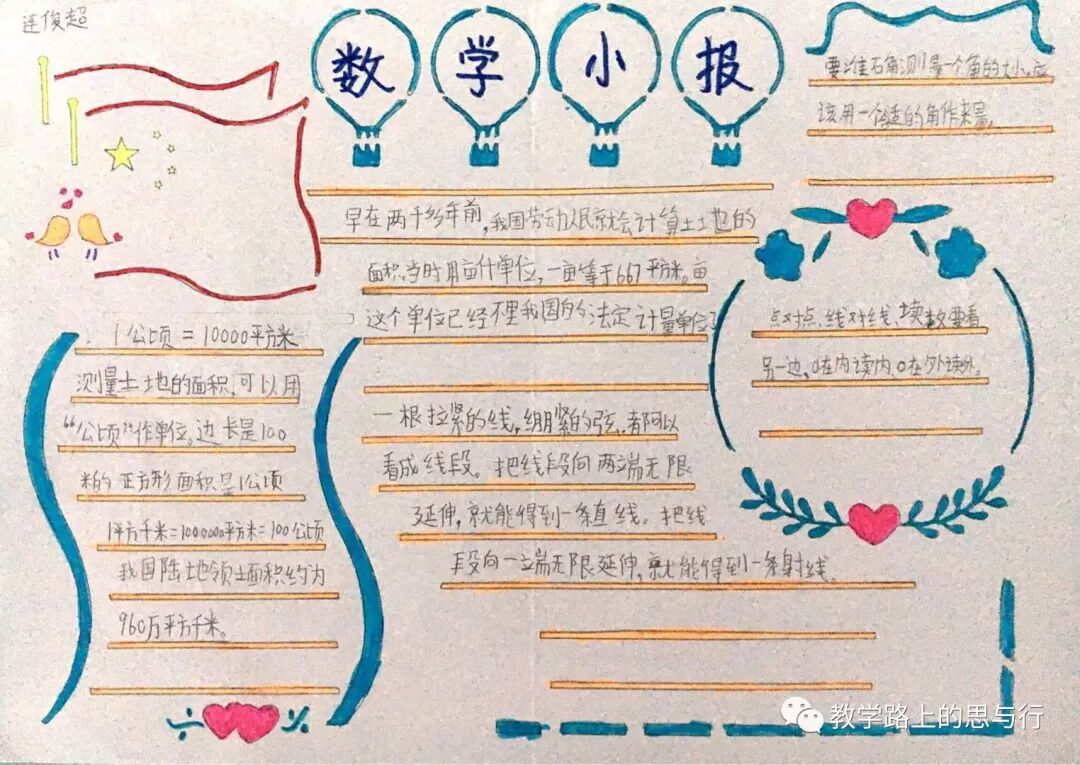 连俊超
数学小报
要准石角测量一个角的大小,应
该用一个合适的角作来量。
早在两千多年前,我国劳动人民就会计算土地的
面积,当时用亩作单位,一亩等于667平方米。亩
这个单位已经不是我国的法定计量单位
1公顷=10000平方米
测量土地的面积,可以用
“公顷”作单位。边长是100
米的正方形面积是1公顷
1平方千米=1000000平方米=100公顷
我国陆地领土面积约为
960万平方千米。
一根拉紧的线,绷紧的弦,都可以
看成线段。把线段向两端无限
延伸,就能得到一条直线。把线
段向一端无限延伸,就能得到一条射线。
点对点,线对线,读数要看
另一边,0在内读内,0在外读外。
教学路上的思与行